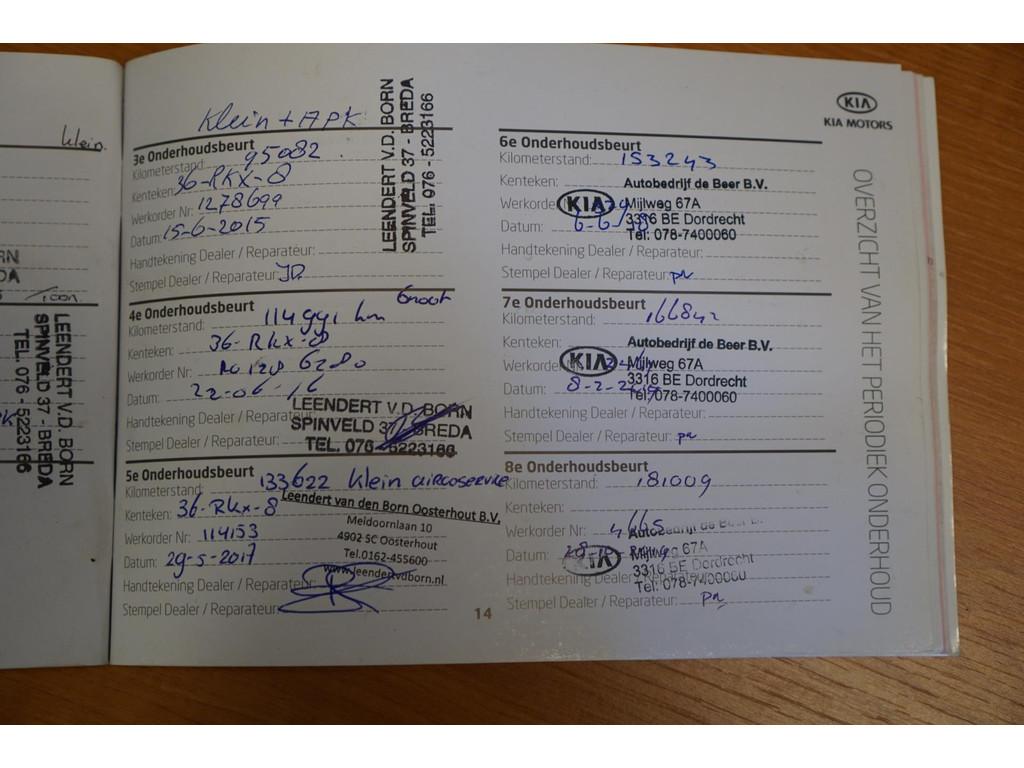 klein
/icon
LEENDERT V.D. BORN
SPINVELD 37 - BREDA
TEL. 076 - 5223166
Klein + APK
3e Onderhoudsbeurt
Kilometerstand: 95082
Kenteken: 36-RKX-8
Werkorder Nr: 1278699
Datum: 15-6-2015
Handtekening Dealer / Reparateur:
Stempel Dealer / Reparateur: JD
LEENDERT V.D. BORN
SPINVELD 37 - BREDA
TEL. 076 - 5223166
Groot
4e Onderhoudsbeurt
Kilometerstand: 114991 km
Kenteken: 36-RKX-8
Werkorder Nr:
Datum: 22-06-16
Handtekening Dealer / Reparateur:
Stempel Dealer / Reparateur:
LEENDERT V.D. BORN
SPINVELD 37 - BREDA
TEL. 076 - 5223166
5e Onderhoudsbeurt
Kilometerstand: 133622 Klein aircoservice
Kenteken: 36-RKX-8
Werkorder Nr: 114153
Datum: 29-5-2017
Handtekening Dealer / Reparateur:
Stempel Dealer / Reparateur:
Leendert van den Born Oosterhout B.V.
Meidoornlaan 10
4902 SC Oosterhout
Tel.0162-455600
www.leendertvdborn.nl
14
KIA
KIA MOTORS
6e Onderhoudsbeurt
Kilometerstand: 153243
Kenteken:
Werkorder
Datum: 6-6-18
Handtekening Dealer / Reparateur:
Stempel Dealer / Reparateur: pr
KIA
Autobedrijf de Beer B.V.
Mijlweg 67A
3316 BE Dordrecht
Tel: 078-7400060
7e Onderhoudsbeurt
Kilometerstand: 166842
Kenteken:
Werkorder
Datum: 8-2-
Handtekening Dealer / Reparateur:
Stempel Dealer / Reparateur: pr
KIA
Autobedrijf de Beer B.V.
Mijlweg 67A
3316 BE Dordrecht
Tel: 078-7400060
8e Onderhoudsbeurt
Kilometerstand: 181009
Kenteken:
Werkorder Nr:
Datum:
Handtekening Dealer / Reparateur:
Stempel Dealer / Reparateur: pr
KIA
Autobedrijf de Beer B.V.
Mijlweg 67A
3316 BE Dordrecht
Tel: 078-7400060
OVERZICHT VAN HET PERIODIEK ONDERHOUD